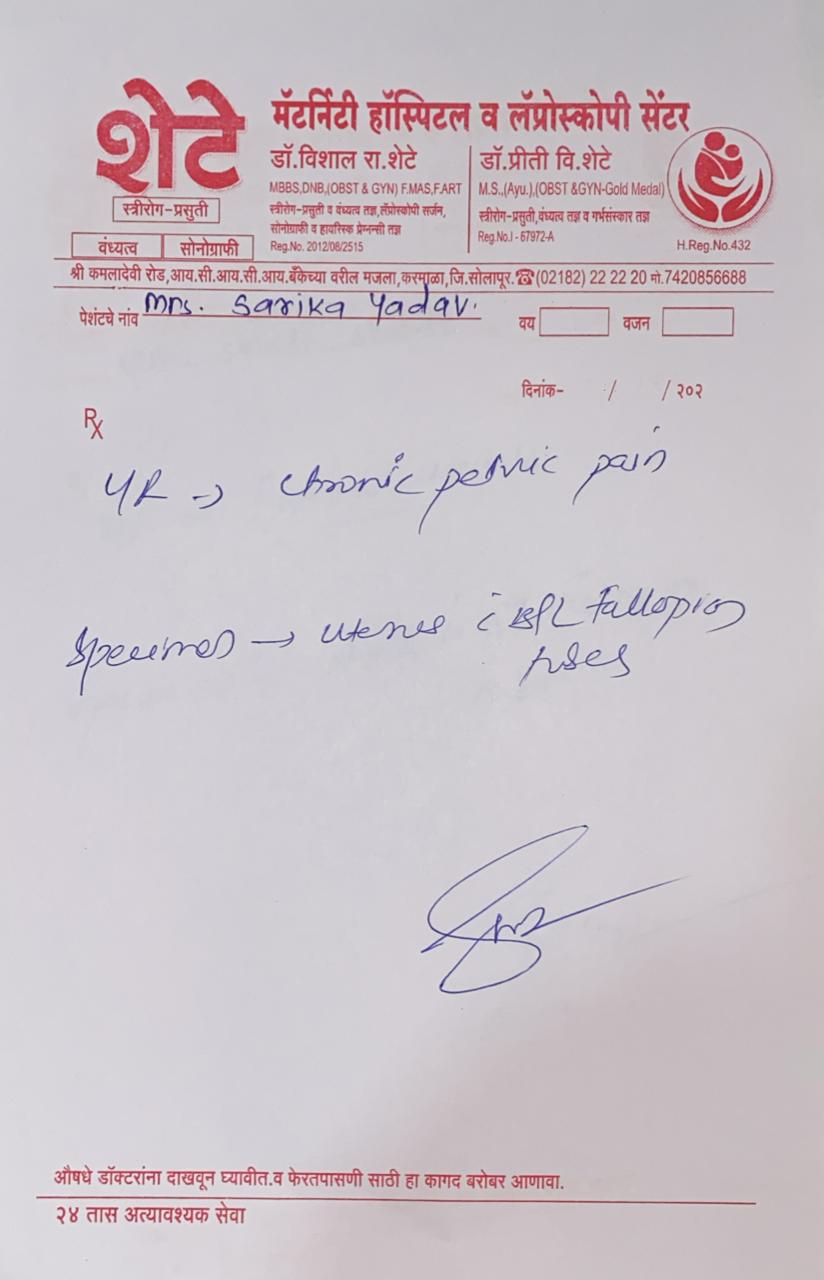 शेटे
स्त्रीरोग-प्रसुती
वंध्यत्व सोनोग्राफी
मॅटर्निटी हॉस्पिटल व लॅप्रोस्कोपी सेंटर
डॉ.विशाल रा.शेटे
MBBS,DNB,(OBST & GYN) F.MAS,F.ART
स्त्रीरोग-प्रसुती व वंध्यत्व तज्ञ,लॅप्रोस्कोपी सर्जन,
सोनोग्राफी व हायरिस्क प्रेग्नन्सी तज्ञ
Reg.No. 2012/08/2515
डॉ.प्रीती वि.शेटे
M.S.,(Ayu.),(OBST &GYN-Gold Medal)
स्त्रीरोग-प्रसुती,वंध्यत्व तज्ञ व गर्भसंस्कार तज्ञ
Reg.No.I - 67972-A
H.Reg.No.432
श्री कमलादेवी रोड,आय.सी.आय.सी.आय.बँकेच्या वरील मजला,करमाळा,जि.सोलापूर.☎(02182) 22 22 20 मो.7420856688
पेशंटचे नांव Mrs. Sarika Yadav.
वय वजन
दिनांक- / / २०२
Rx
→ chronic pelvic pain
specimen → uterus c̄ B/L Fallopian
tubes
औषधे डॉक्टरांना दाखवून घ्यावीत.व फेरतपासणी साठी हा कागद बरोबर आणावा.
२४ तास अत्यावश्यक सेवा